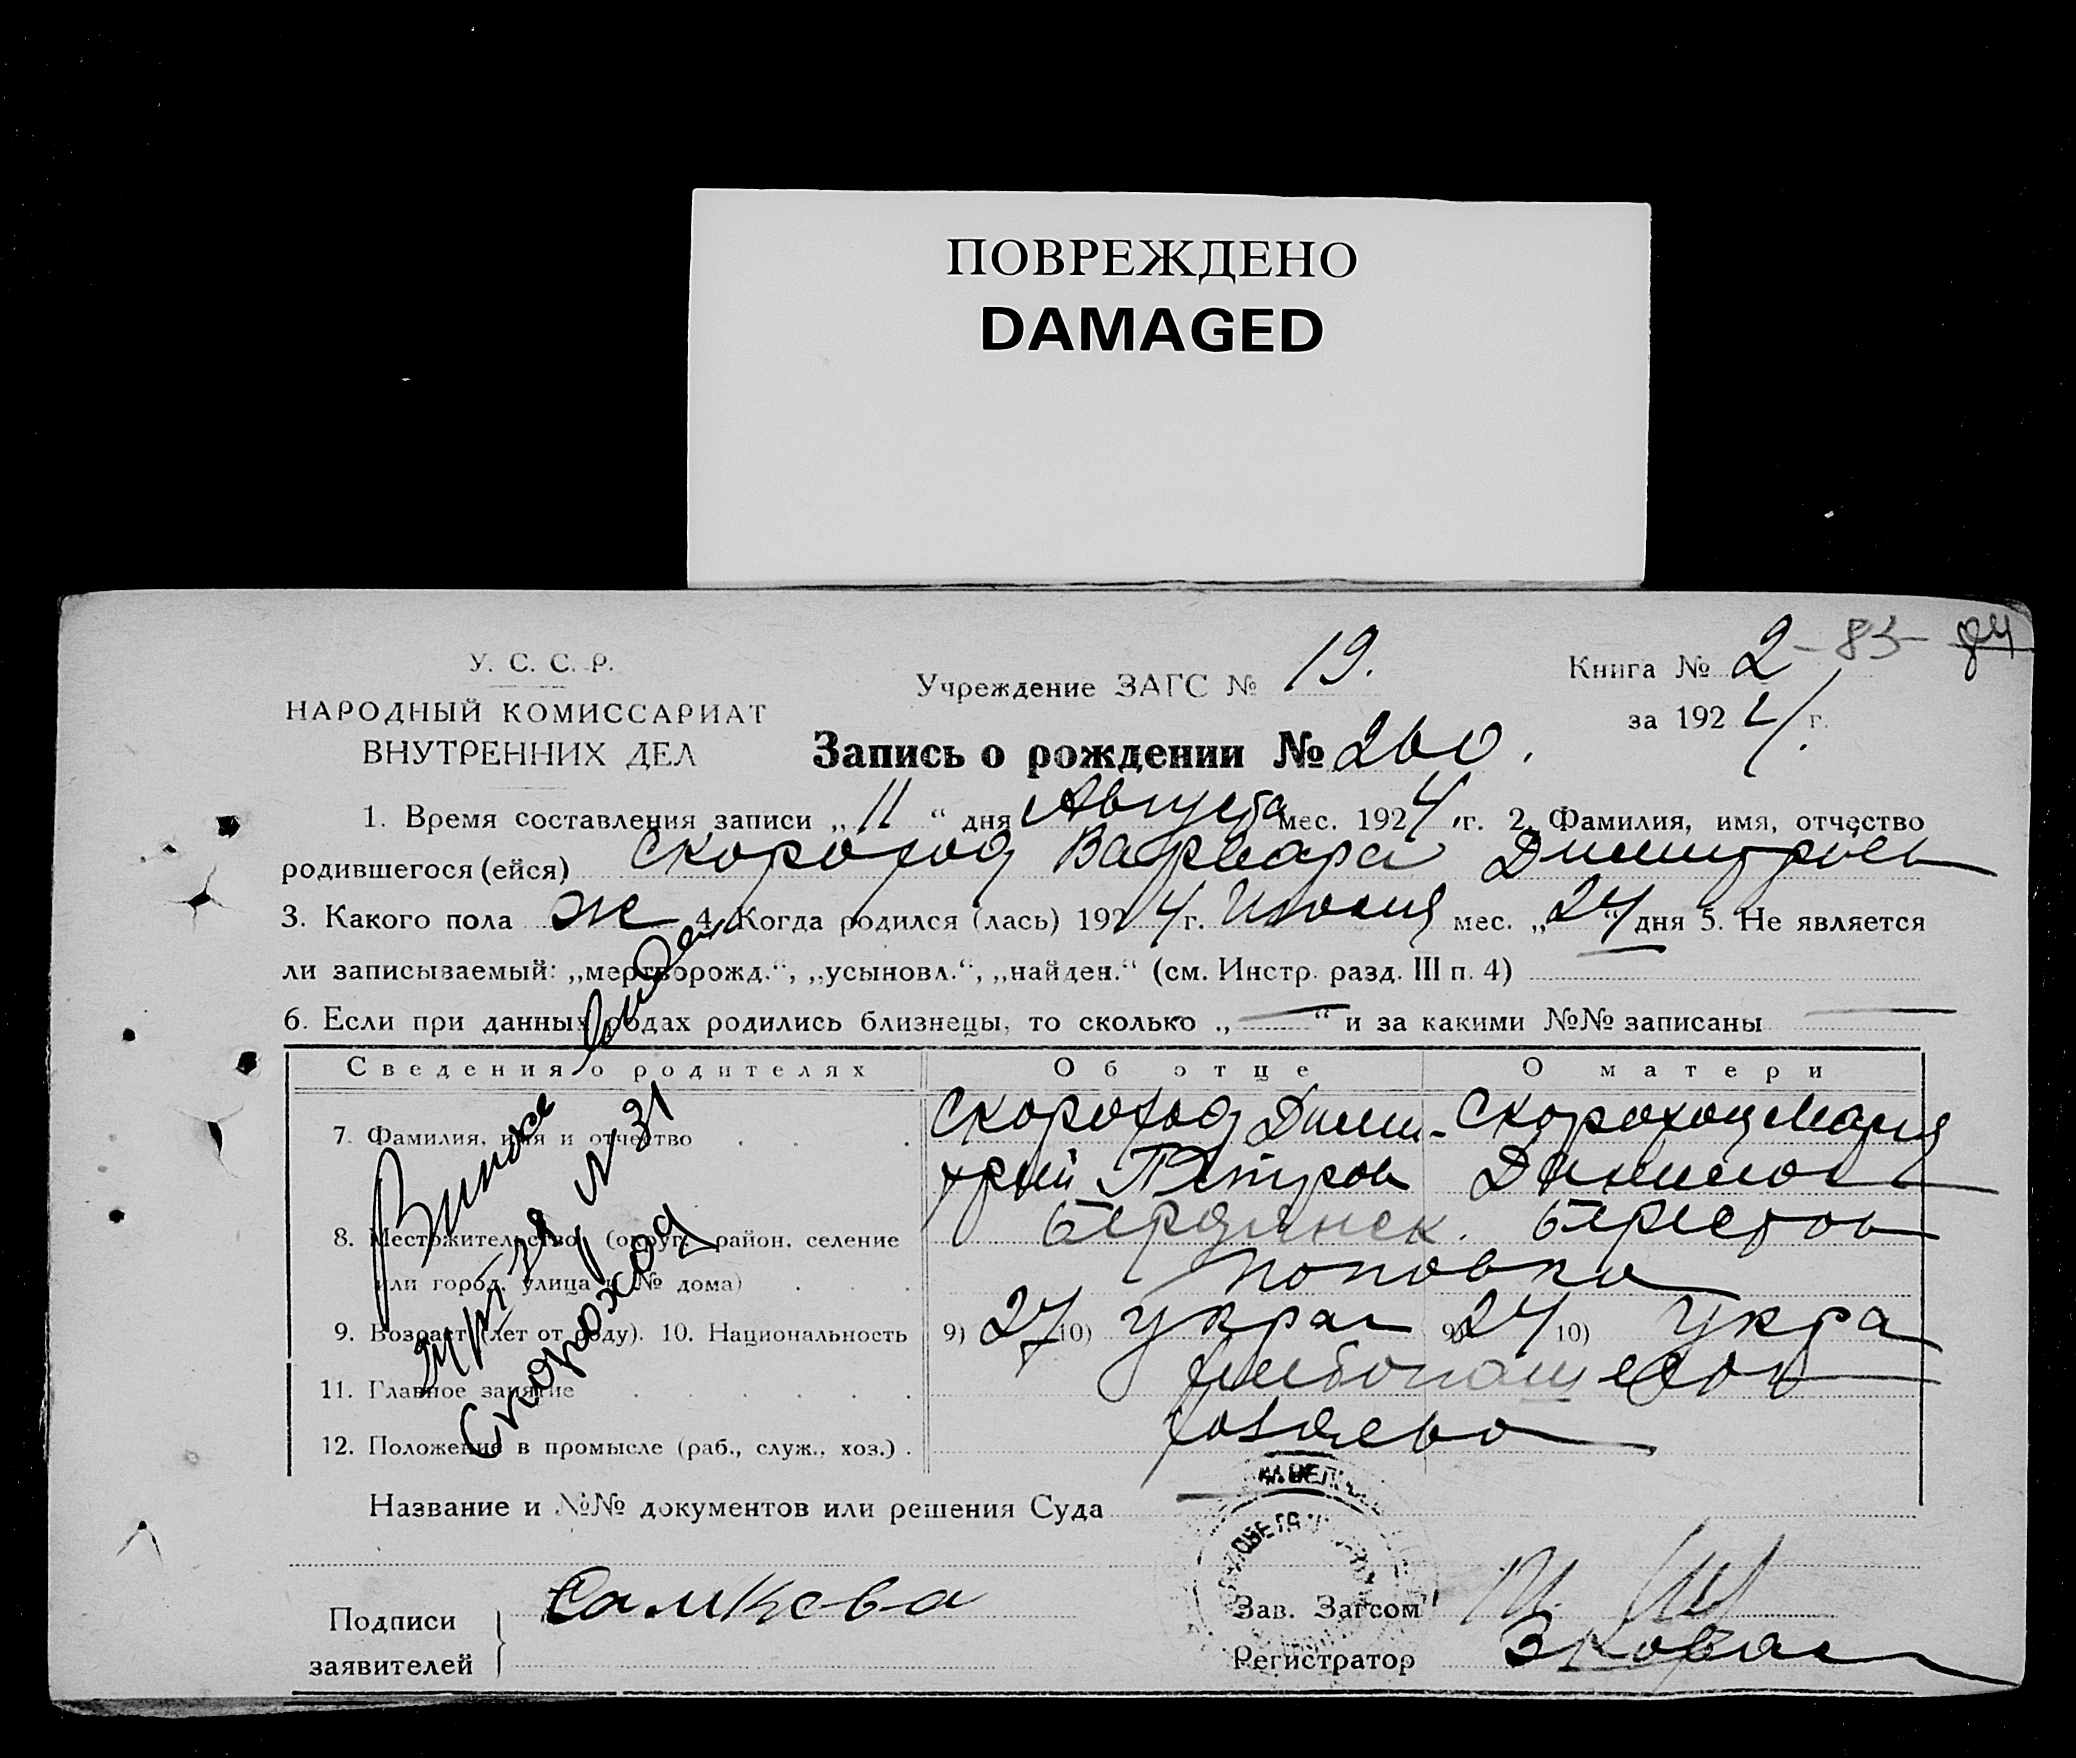 ПОВРЕЖДЕНО
DAMAGED
У. С. С. Р.
НАРОДНЫЙ КОМИССАРИАТ
ВНУТРЕННИХ ДЕЛ
Учреждение ЗАГС № 19.
Книга № 2 - 83 - 84
за 1924 г.
Запись о рождении № 260.
1. Время составления записи „11“ дня Августа мес. 1924 г. 2. Фамилия, имя, отчество
родившегося (ейся) Скороход Варвара Димитриев
3. Какого пола ж 4. Когда родился (лась) 1924 г. Июля мес. „24“ дня 5. Не является
ли записываемый: „мертворожд.“, „усыновл.“, „найден.“ (см. Инстр. разд. III п. 4)
6. Если при данных родах родились близнецы, то сколько „—“ и за какими №№ записаны —
Сведения о родителях Об отце О матери
7. Фамилия, имя и отчество Скороход Дими- Скороход Мария
трий Петров
8. Местожительство (округ, район, селение Бердянск. Берестов
или город, улица и № дома) Поповка
9. Возраст (лет от роду). 10. Национальность 9) 27 10) Украи 9) 24 10) Укра
11. Главное занятие Хлебопашество
12. Положение в промысле (раб., служ., хоз.) Хозяева
№ 31
Скороход
Название и №№ документов или решения Суда —
Подписи
заявителей
Зав. Загсом
Регистратор